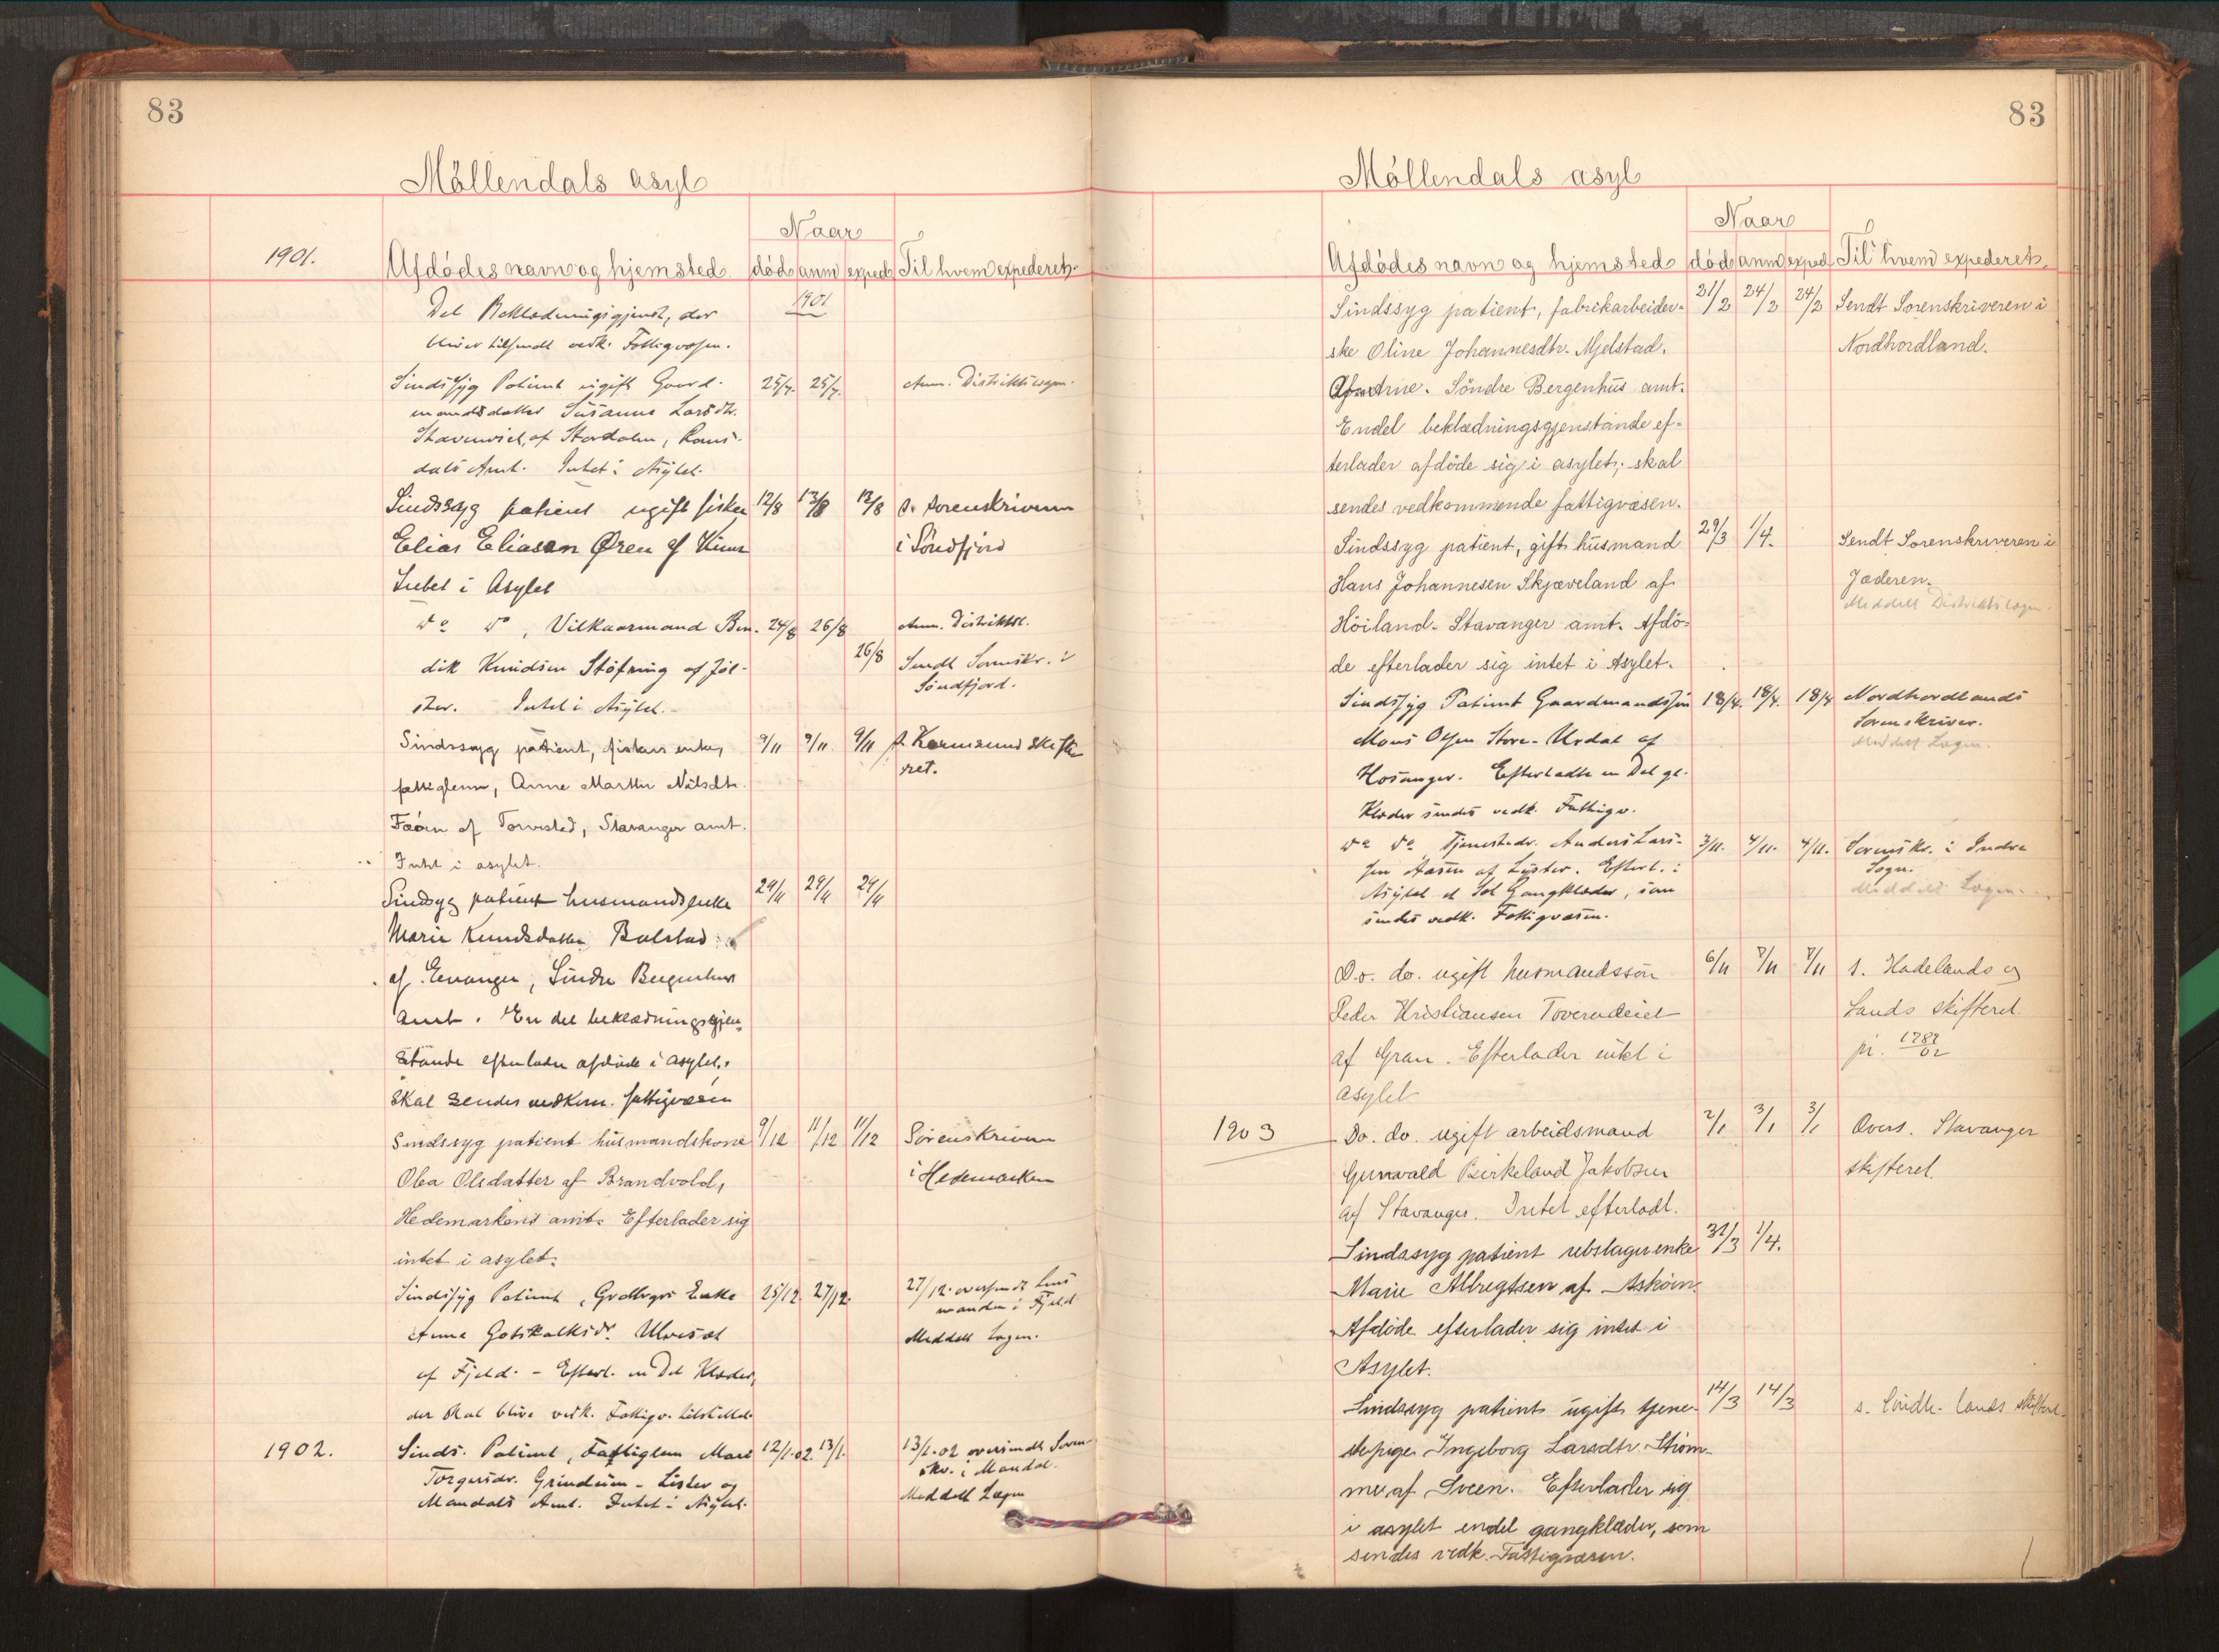 83
Möllendals asyl
Naar
1901.
Afdödes navn og hjemsted. död anm exped. Til hvem expederet.
Del Beklædningsgjenst, der 1901
bliver tilsendt vedk. Fattigvæsen.
Sindssyg Patient ugift Gaard- 25/7. 25/7. Anm. Distriktslægen.
mandsdatter Susanne Larsdtr.
af Stordalen, Roms-
dals Amt. Intet i Asylet.
Sindssyg patient ugift fisker 12/8 13/8 13/8 s. sorenskriveren
Elias Eliasen Øren af Kinn i Söndfjord
Intet i Asylet
do do, Vilkaarmand Ben- 24/8 26/8 Anm. Distriktsl.
26/8 Sendt Sorenskr. i
dik Knudsen Støfring af Jöl- Söndfjord.
ster. Intet i Asylet.
Sindssyg patient, fiskers enke, 9/11 9/11. 9/11 s. Karmsund skifte
fattiglem, Anne Marthe Nilsdtr. ret.
Faöen af Torvested, Stavanger amt.
Intet i asylet.
Sindsyg patient husmandsenke 29/11 29/11 29/11
Marie Knudsdatter Bolstad
af Evanger, Söndre Bergenhus
Amt. En del beklædningsgjen-
stande efterlader afdöde i asylet,
skal sendes vedkom. fattigvæsen
Sindssyg patient husmandskone 9/12 11/12 11/12 Sorenskriveren
Olea Olsdatter af Brandvold, i Hedemarken
Hedemarkens amt. Efterlader sig
intet i asylet.
Sindssyg Patient, Enke 25/12. 27/12. 27/12. oversendt Lens
manden i Fjeld
Anna Gotskalksdr. Ulvesæt Meddelt Lægen.
af Fjeld. - Efterl. en Del Klæder,
der skal blive vedk. Fattigv. tilstillet.
1902. Sinds. Patient, Fattiglem Mari 12/1.02. 13/1. 13/1.02 oversendt Soren-
skr. i Mandal.
Torgersdr. Grindum - Lister og
Mandals Amt. Intet i Asylet. Meddelt Lægen
83
Möllendals asyl
Naar
Afdödes navn og hjemsted död anm exped Til hvem expederet.
Sindssyg patient, fabrikarbeider- 21/2 24/2 24/2 Sendt Sorenskriveren i
ske Oline Johannesdtr. Mjelstad. Nordhordland.
Söndre Bergenhus amt.
Endel beklædningsgjenstande ef-
terlader afdöde sig i asylet; skal
sendes vedkommende fattigvæsen.
Sindssyg patient, gift husmand 29/3 1/4. Sendt Sorenskriveren i
Hans Johannesen Skjæveland af Jæderen.
Meddelt Distriktslægen.
Höiland - Stavanger amt. Afdö-
de efterlader sig intet i Asylet.
Sindssyg Patient Gaardmandssön 18/4. 18/4. 18/4 Nordhordlands
Sorenskriver.
Mons Olsen Store-Urdal af Meddelt Lægen.
Hosanger. Efterladte en Del gl.
Klæder sendes vedk. Fattigv.
do do Tjenestedr. Anders Lars- 3/11. 4/11. 4/11. Sorenskr. i Indre
Sogn.
sen Aasen af Lyster. Efterl. i Meddelt Lægen.
Asylet et Sæt Gangklæder, som
sendes vedk. Fattigvæsen.
Do. do. ugift husmandssön 6/11 7/11 7/11 s. Hadelands og
Peder Kristiansen Toverudeiet Lands skifteret.
af Gran. Efterlader intet i
asylet
1903 Do. do. ugift arbeidsmand 2/1 3/1 3/1 Overs. Stavanger
Gunvald Birkeland Jakobsen skifteret.
af Stavanger. Intet efterladt.
Sindssyg patient rebslagerenke 31/3 1/4.
Marie Albregtsen af Asköen.
Afdöde efterlader sig intet i
Asylet.
Sindssyg patient ugift tjene- 14/3 14/3
stepige Ingeborg Larsdtr. Ström-
me af Sveen. Efterlader sig
i asylet endel gangklæder, som
sendes vedk. Fattigvæsen.